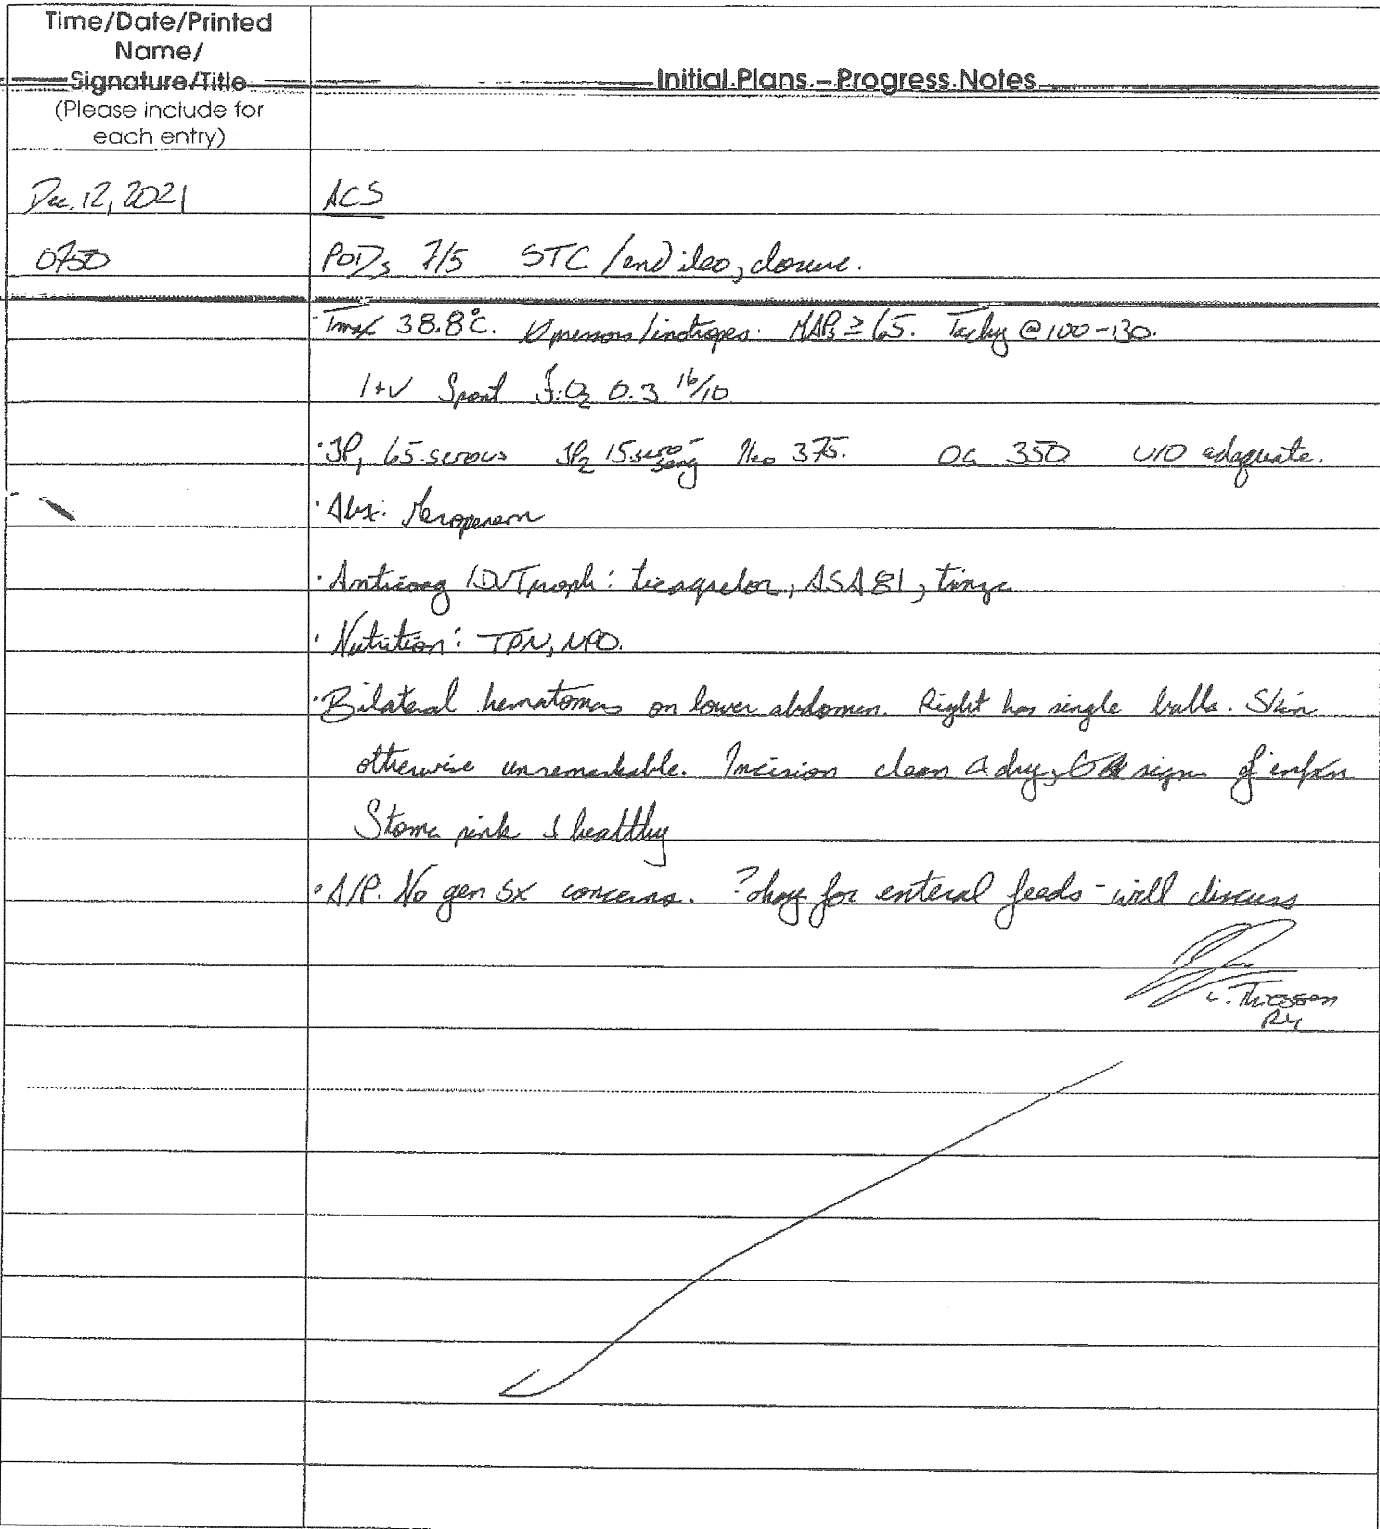 Time/Date/Printed
Name/
Signature/Title
(Please include for
each entry)
Initial Plans – Progress Notes
Dec. 12, 2021
ACS
0750
PODs 7/5 STC / end ileo, closure.
· Tmax 38.8°C. pressors/inotropes. MAPs ≥ 65. Tachy @ 100-130.
I+V Spont FiO2 0.3 16/10
· JP1 65 serous JP2 15 sero-sang Ileo 375. OG 350 U/O adequate.
· Abx: Meropenem
· Anticoag / DVT proph: ticagrelor, ASA 81, tinza
· Nutrition: TPN, NPO.
· Bilateral hematomas on lower abdomen. Right has single bulla. Skin
otherwise unremarkable. Incision clean & dry, signs of infxn
Stoma pink & healthy
· A/P. No gen sx concerns. ? okay for enteral feeds - will discuss
L. Thiessen